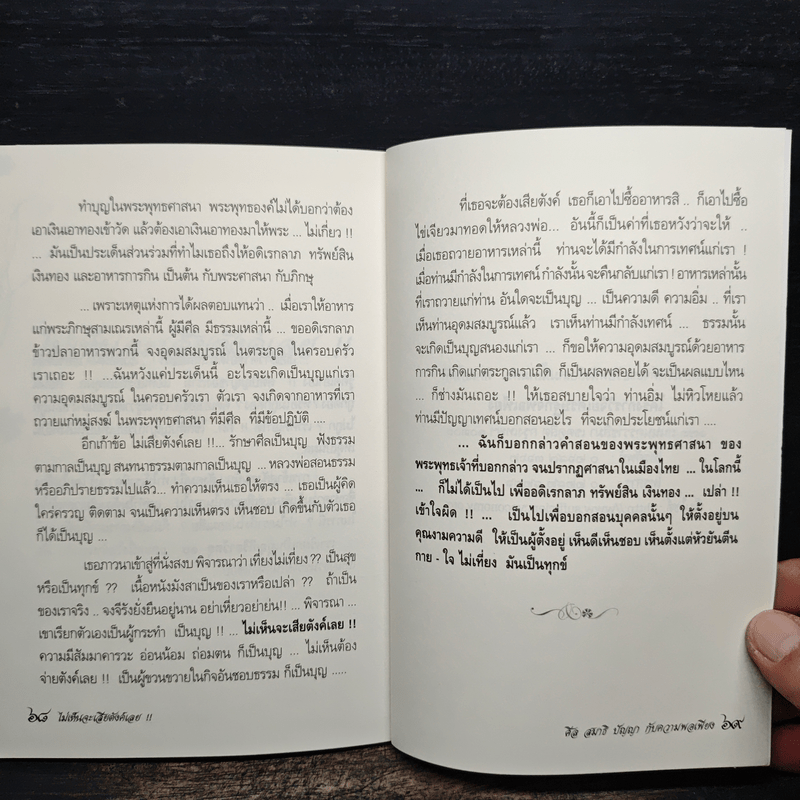 ทำบุญในพระพุทธศาสนา พระพุทธองค์ไม่ได้บอกว่าต้อง
เอาเงินเอาทองเข้าวัด แล้วต้องเอาเงินเอาทองมาให้พระ ... ไม่เกี่ยว !!
.... มันเป็นประเด็นส่วนร่วมที่ทำไมเธอถึงให้อดิเรกลาภ ทรัพย์สิน
เงินทอง และอาหารการกิน เป็นต้น กับพระศาสนา กับภิกษุ
... เพราะเหตุแห่งการได้ผลตอบแทนว่า .. เมื่อเราให้อาหาร
แก่พระภิกษุสามเณรเหล่านี้ ผู้มีศีล มีธรรมเหล่านี้ ... ขออดิเรกลาภ
ข้าวปลาอาหารพวกนี้ จงอุดมสมบูรณ์ ในตระกูล ในครอบครัว
เราเถอะ !! ...ฉันหวังแค่ประเด็นนี้ อะไรจะเกิดเป็นบุญแก่เรา
ความอุดมสมบูรณ์ ในครอบครัวเรา ตัวเรา จงเกิดจากอาหารที่เรา
ถวายแก่หมู่สงฆ์ ในพระพุทธศาสนา ที่มีศีล ที่มีข้อปฏิบัติ ....
อีกเก้าข้อ ไม่เสียตังค์เลย !!... รักษาศีลเป็นบุญ ฟังธรรม
ตามกาลเป็นบุญ สนทนาธรรมตามกาลเป็นบุญ ... หลวงพ่อสอนธรรม
หรืออภิปรายธรรมไปแล้ว... ทำความเห็นเธอให้ตรง ... เธอเป็นผู้คิด
ใคร่ครวญ ติดตาม จนเป็นความเห็นตรง เห็นชอบ เกิดขึ้นกับตัวเธอ
ก็ได้เป็นบุญ ...
เธอภาวนาเข้าสู่ที่นั่งสงบ พิจารณาว่า เที่ยงไม่เที่ยง ?? เป็นสุข
หรือเป็นทุกข์ ?? เนื้อหนังมังสาเป็นของเราหรือเปล่า ?? ถ้าเป็น
ของเราจริง .. จงจีรังยั่งยืนอยู่นาน อย่าเหี่ยวอย่าย่น!! ... พิจารณา ...
เขาเรียกตัวเองเป็นผู้กระทำ เป็นบุญ !! ... ไม่เห็นจะเสียตังค์เลย !!
ความมีสัมมาคารวะ อ่อนน้อม ถ่อมตน ก็เป็นบุญ ... ไม่เห็นต้อง
จ่ายตังค์เลย !! เป็นผู้ขวนขวายในกิจอันชอบธรรม ก็เป็นบุญ .....
๖๘ ไม่เห็นจะเสียตังค์เลย !!
ที่เธอจะต้องเสียตังค์ เธอก็เอาไปซื้ออาหารสิ .. ก็เอาไปซื้อ
ไข่เจียวมาทอดให้หลวงพ่อ... อันนี้ก็เป็นค่าที่เธอหวังว่าจะให้ ..
เมื่อเธอถวายอาหารเหล่านี้ ท่านจะได้มีกำลังในการเทศน์แก่เรา !
เมื่อท่านมีกำลังในการเทศน์ กำลังนั้น จะคืนกลับแก่เรา ! อาหารเหล่านั้น
ที่เราถวายแก่ท่าน อันใดจะเป็นบุญ ... เป็นความดี ความอิ่ม .. ที่เรา
เห็นท่านอุดมสมบูรณ์แล้ว เราเห็นท่านมีกำลังเทศน์ ... ธรรมนั้น
จะเกิดเป็นบุญสนองแก่เรา ... ก็ขอให้ความอุดมสมบูรณ์ด้วยอาหาร
การกิน เกิดแก่ตระกูลเราเถิด ก็เป็นผลพลอยได้ จะเป็นผลแบบไหน
... ก็ช่างมันเถอะ !! ให้เธอสบายใจว่า ท่านอิ่ม ไม่หิวโหยแล้ว
ท่านมีปัญญาเทศน์บอกสอนอะไร ที่จะเกิดประโยชน์แก่เรา ....
... ฉันก็บอกกล่าวคำสอนของพระพุทธศาสนา ของ
พระพุทธเจ้าที่บอกกล่าว จนปรากฏศาสนาในเมืองไทย ... ในโลกนี้
... ก็ไม่ได้เป็นไป เพื่ออดิเรกลาภ ทรัพย์สิน เงินทอง ... เปล่า !!
เข้าใจผิด !! ... เป็นไปเพื่อบอกสอนบุคคลนั้นๆ ให้ตั้งอยู่บน
คุณงามความดี ให้เป็นผู้ตั้งอยู่ เห็นดีเห็นชอบ เห็นตั้งแต่หัวยันตีน
กาย - ใจ ไม่เที่ยง มันเป็นทุกข์
ศีล สมาธิ ปัญญา กับความพอเพียง ๖๙